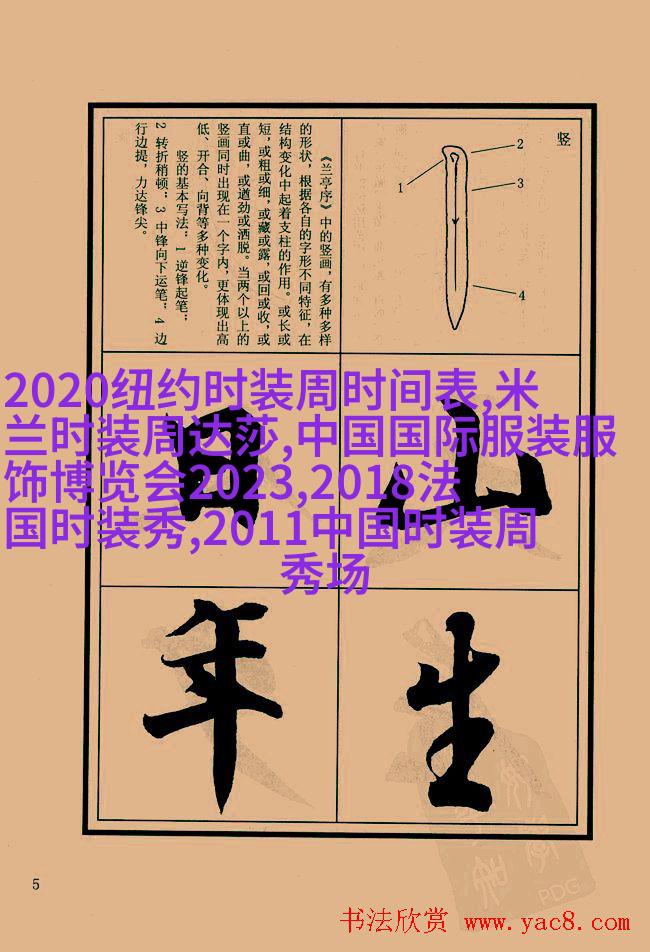 竖
1
2
3
4
《兰亭序》中的竖画，有多种多样
的形状，根据各自的字形不同特征，在
结构变化中起着支柱的作用。或长或
短，或粗或细，或藏或露，或回或收，或
直或曲，或遒劲或洒脱。当两个以上的
竖画同时出现在一个字内，更体现出高
低、开合、向背等多种变化。
竖的基本写法：1 逆锋起笔；
2 转折稍顿；3 中锋向下运笔；4 边
行边提，力达锋尖。
2020纽约时装周时间表,米
兰时装周达莎,中国国际服装服
饰博览会2023,2018法
国时装秀,2011中国时装周
秀场
山
日
生
年
5
PDG
书法欣赏 www.yac8.com